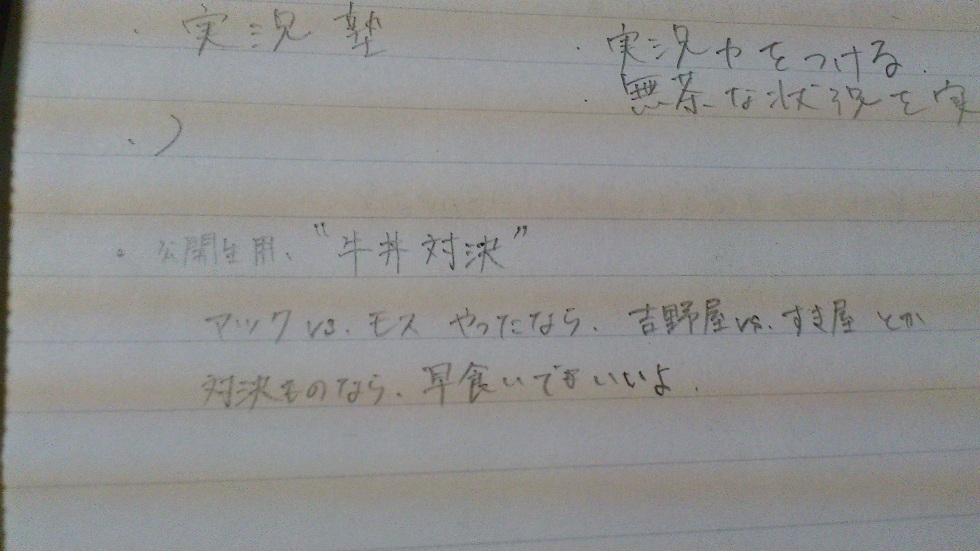 ・実況塾
・実況力をつける.
・無茶な状況を実
・)
。公開生用、“牛丼対決”
マック vs. モス やったなら、吉野屋 vs. すき屋 とか
対決ものなら、早食いでもいいよ.